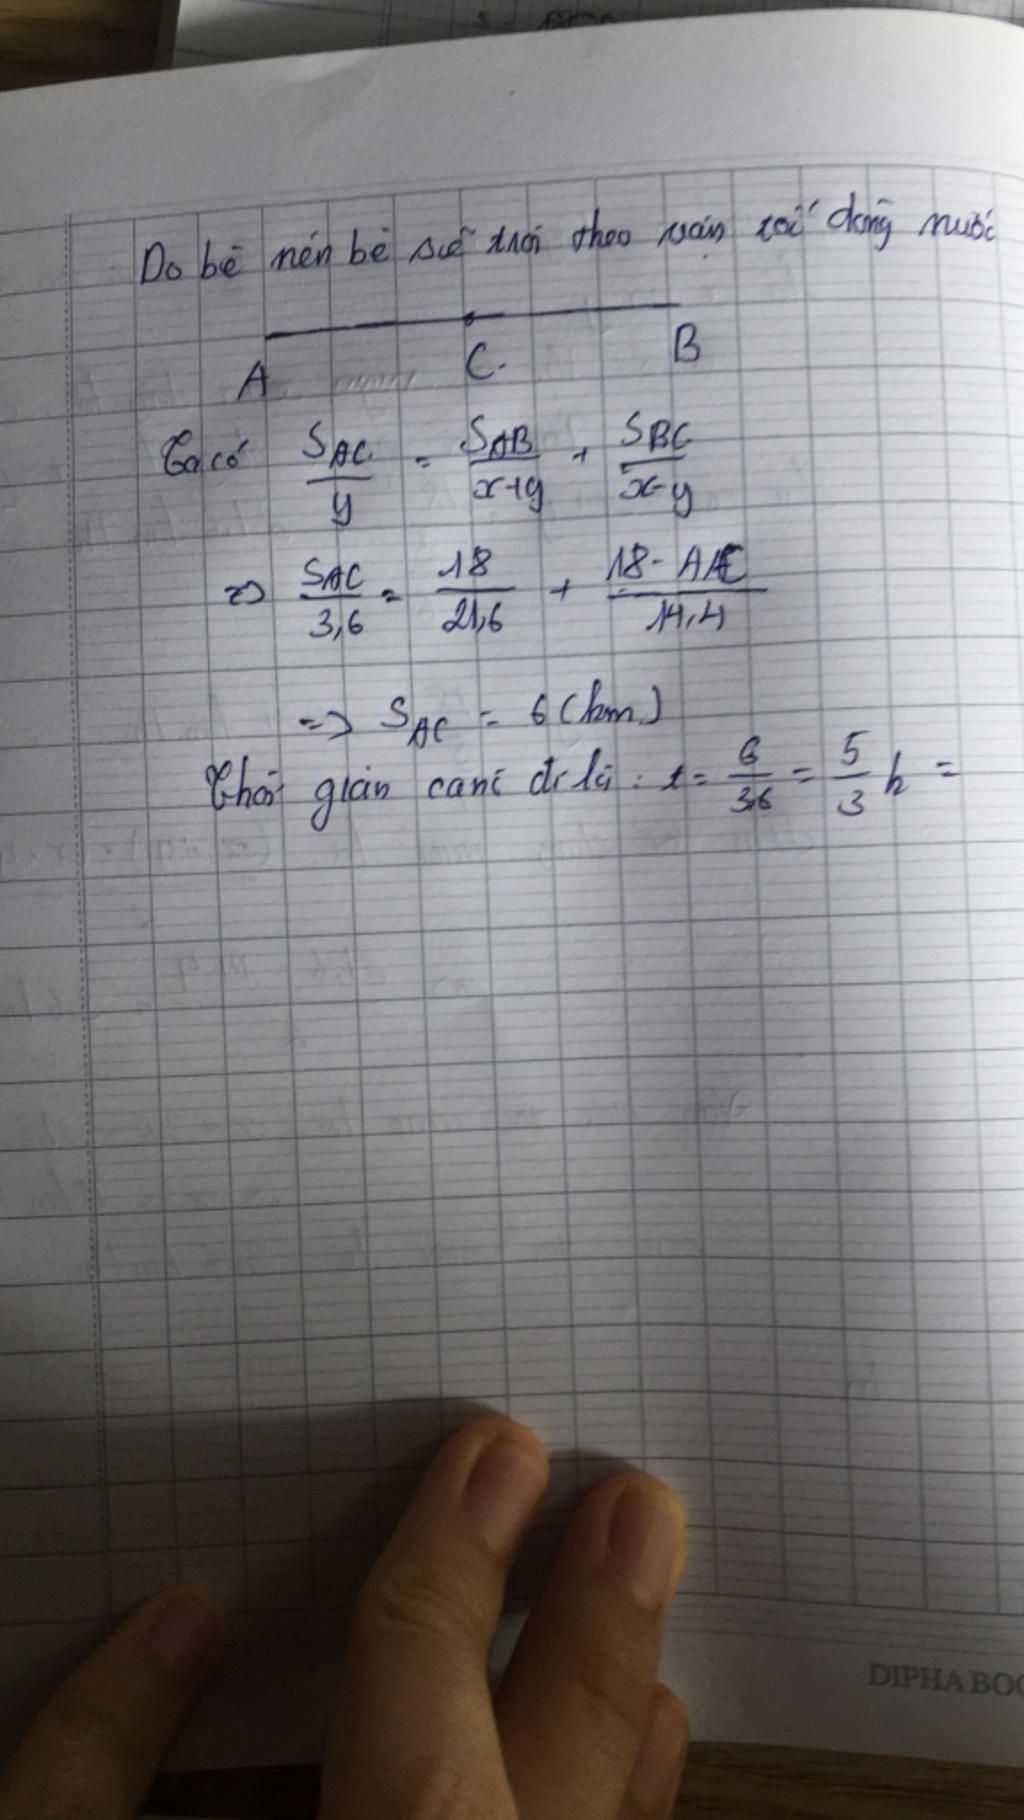 Do bè nên bè sẽ trôi theo vận tốc dòng nước
A C. B
Ta có S_AC/y = S_AB/(x+y) + S_BC/(x-y)
=> S_AC/3,6 = 18/21,6 + (18-AC)/14,4
=> S_AC = 6 (km)
Thời gian canô đi là : t = 6/3,6 = 5/3 h =
DIPHA BOO